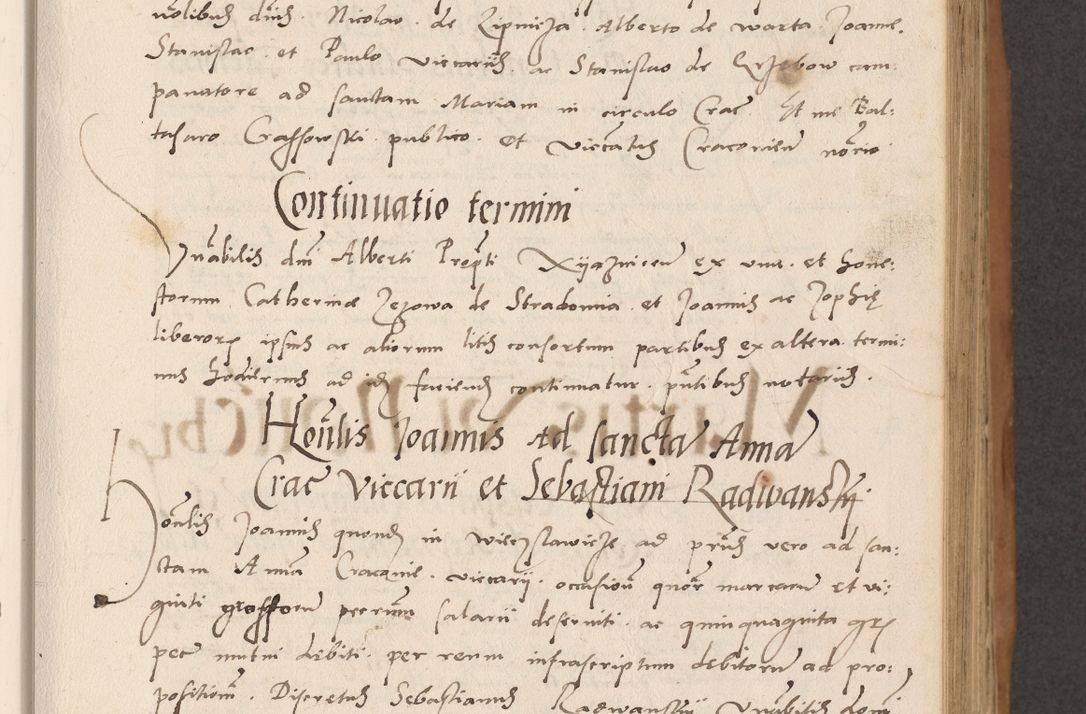 nōlibus dnis Nicolao de Lipnicza Alberto de warta Joanne,
Stanislao et Paulo viccariis ac Stanislao de Grzebow cam:
panatore ad sanctam Mariam in circulo Crac Et me Bal:
tasaro Crassowski publico et viccatus Cracovien norio
Continuatio termini
Vnabilis dni Alberti Prepti Xyaznicen ex una et hone:
storum Catherinae Jezowa de Stradomia et Joannis ac Zophię
liberorum ipsius ac aliorum litis consortum partibus ex altera termi:
nus hodiernus ad idem faciendum continuatur pntibus notariis.
Honlis Joannis Ad sancta Anna
Crac viccarii et Sebastiani Radwansky
Honlis Joannis quondam in wieczslawicze ad prns vero ad san:
ctam Annam Cracovie viccarii occasione quor marcarum et vi:
ginti grossorum pecuniarum salarii deserviti ac quinquaginta grs
pec mutui debiti per reum infrascriptum debitorum ad pro:
positionem Discretus Sebastianus Radwanskij Vnabilis domi